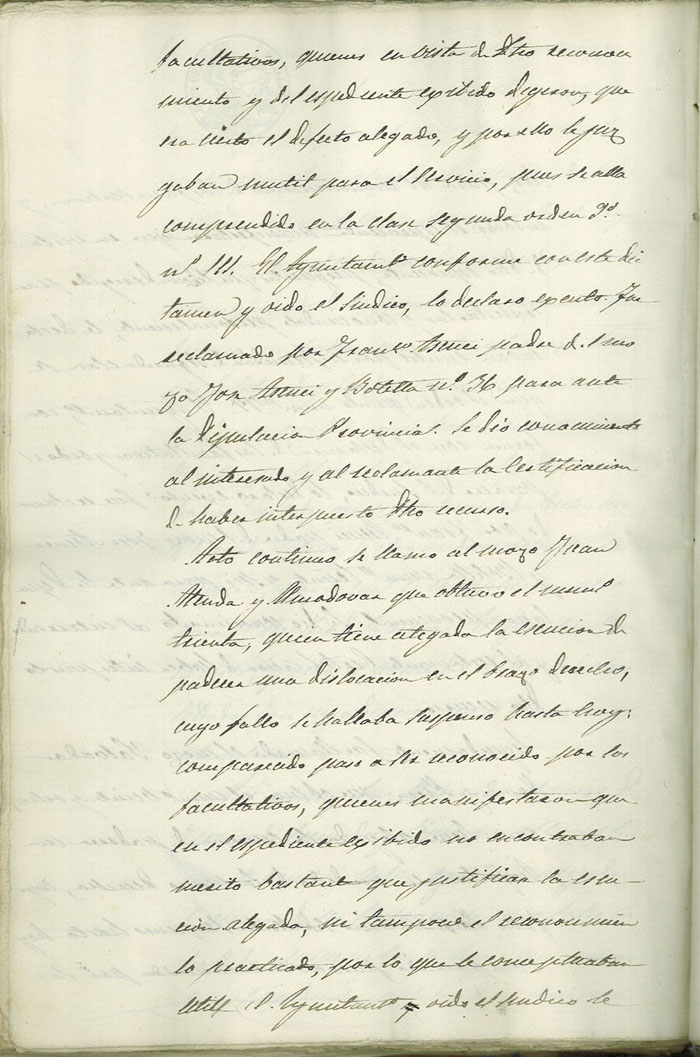 facultativos, quienes en vista de dho reconoci
miento y del espediente exibido digeron, que
era cierto el defecto alegado, y por ello le juz
gaban inutil para el servicio, pues se alla
comprendido en la clase segunda orden 9º
nº 111. El Ayuntamto conforme con este dic
tamen y oido el Sindico, lo declaro exento. Fue
reclamado por Franco Asnci padre del mo
zo Jose Asnci y Botella nº 36 para ante
la Diputacion Provincial. Se dio conocimiento
al interesado y al reclamante la Certificacion
de haber interpuesto dho recurso.
Acto continuo se llamo al mozo Juan
y Almodovar que obtuvo el num
treinta, quien tiene alegada la esencion de
padecer una dislocacion en el brazo derecho,
cuyo fallo se hallaba suspenso hasta hoy;
comparecido paso a ser reconocido por los
facultativos, quienes manifestaron que
en el espediente exibido no encontraban
merito bastante que justificar la esen-
cion alegada, ni tampoco el reconocimien
to practicado, por lo que le conceptuaban
util. El Ayuntamto y oido el sindico le